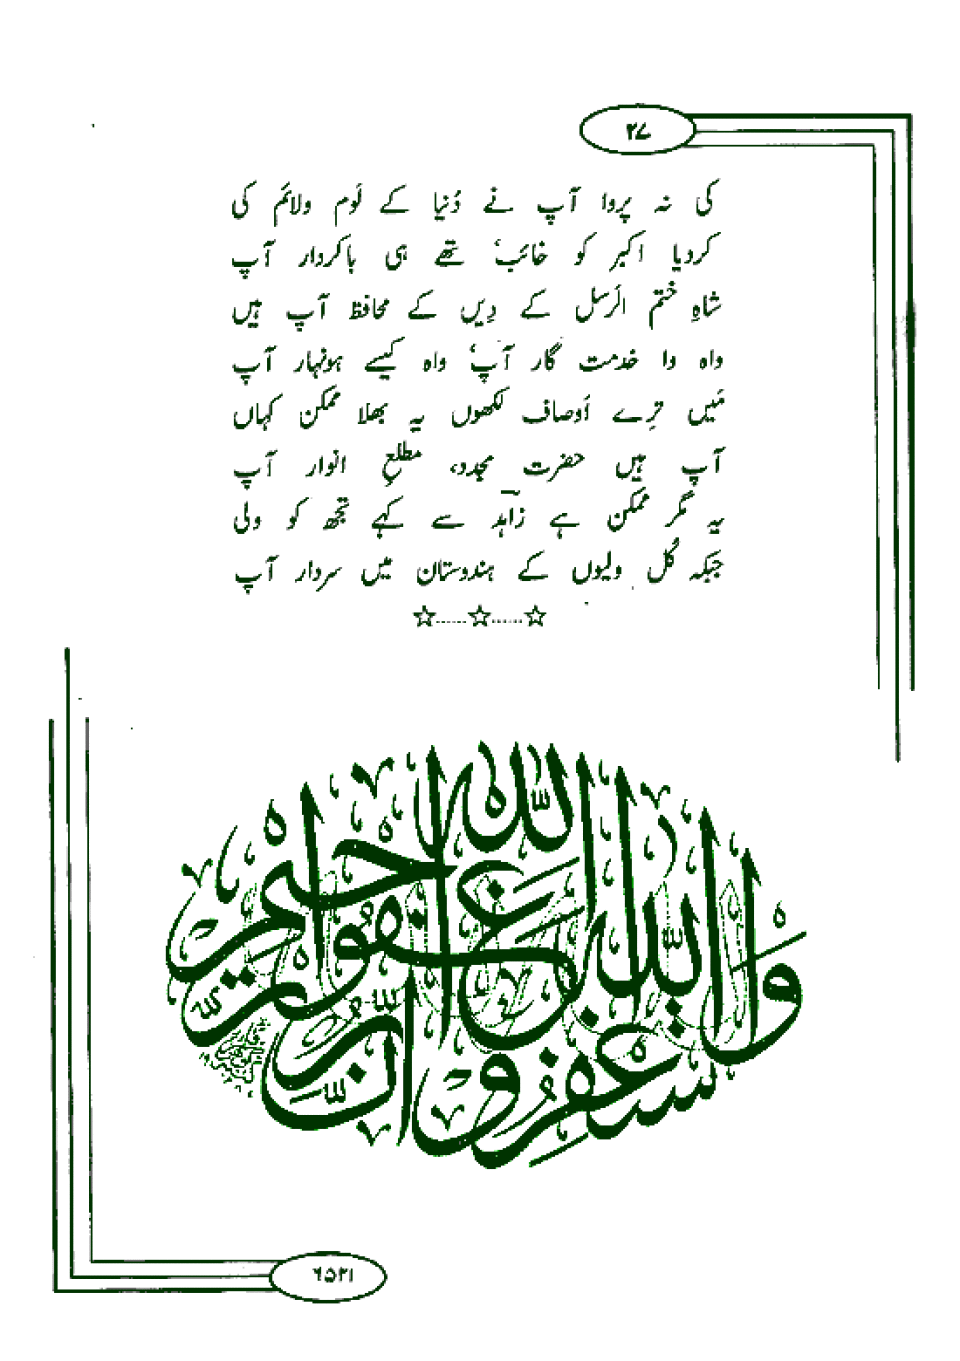 ۲۷
کی نہ پروا آپ نے دُنیا کے لَوم ولائم کی
کردیا اکبر کو خائب‘ تھے ہی باکردار آپ
شاہِ ختم الرسل کے دِیں کے محافظ آپ ہیں
واہ وا خدمت گار آپ‘ واہ کیسے ہونہار آپ
مَیں تِرے اَوصاف لکھوں یہ بھلا ممکن کہاں
آپ ہیں حضرت مجدد، مطلعِ انوار آپ
یہ مگر ممکن ہے زاہد سے کہے تجھ کو ولی
جبکہ کُل ولیوں کے ہندوستان میں سردار آپ
☆......☆......☆
واستغفروا الله ان الله غفور رحیم